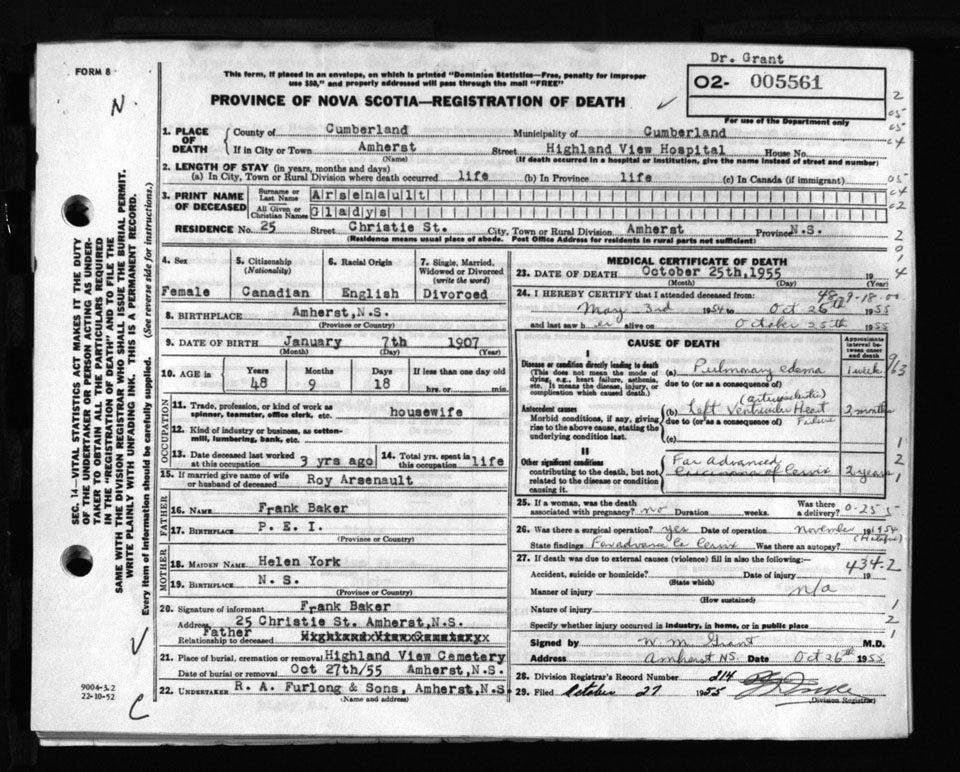 Dr. Grant
FORM 8
This form, if placed in an envelope, on which is printed "Dominion Statistics—Free, penalty for improper
use $50," and properly addressed will pass through the mail "FREE"
02- 005561
For use of the Department only
PROVINCE OF NOVA SCOTIA—REGISTRATION OF DEATH
N
SEC. 14—VITAL STATISTICS ACT MAKES IT THE DUTY
OF THE UNDERTAKER OR PERSON ACTING AS UNDER-
TAKER TO OBTAIN ALL THE PARTICULARS REQUIRED
IN THE "REGISTRATION OF DEATH" AND TO FILE THE
SAME WITH THE DIVISION REGISTRAR WHO SHALL ISSUE THE BURIAL PERMIT.
WRITE PLAINLY WITH UNFADING INK. THIS IS A PERMANENT RECORD.
Every item of information should be carefully supplied. (See reverse side for instructions.)
1. PLACE OF DEATH
County of Cumberland Municipality of Cumberland
If in City or Town Amherst Street Highland View Hospital House No.
(Name) (If death occurred in a hospital or institution, give the name instead of street and number)
2. LENGTH OF STAY (in years, months and days)
(a) In City, Town or Rural Division where death occurred life (b) In Province life (c) In Canada (if immigrant)
3. PRINT NAME OF DECEASED
Surname or Last Name Arsenault
All Given or Christian Names Gladys
RESIDENCE No. 25 Street Christie St. City, Town or Rural Division Amherst Province N.S.
(Residence means usual place of abode. Post Office Address for residents in rural parts not sufficient)
4. Sex
Female
5. Citizenship (Nationality)
Canadian
6. Racial Origin
English
7. Single, Married, Widowed or Divorced (write the word)
Divorced
8. BIRTHPLACE Amherst, N.S.
(Province or Country)
9. DATE OF BIRTH January 7th 1907
(Month) (Day) (Year)
10. AGE is Years 48 Months 9 Days 18 If less than one day old
hrs. or min.
OCCUPATION
11. Trade, profession, or kind of work as
spinner, teamster, office clerk, etc. housewife
12. Kind of industry or business, as cotton-
mill, lumbering, bank, etc.
13. Date deceased last worked at this occupation 3 yrs ago
14. Total yrs. spent in this occupation life
15. If married give name of wife
or husband of deceased Roy Arsenault
FATHER
16. Name Frank Baker
17. Birthplace P. E. I.
(Province or Country)
MOTHER
18. MAIDEN NAME Helen York
19. BIRTHPLACE N. S.
(Province or Country)
20. Signature of informant Frank Baker
Address 25 Christie St. Amherst, N.S.
Relationship to deceased Father
21. Place of burial, cremation or removal Highland View Cemetery
Date of burial Oct 27th/55 Amherst, N.S.
22. UNDERTAKER R. A. Furlong & Sons, Amherst, N.S.
(Name and address)
9004-3.2
22-10-52
V
C
MEDICAL CERTIFICATE OF DEATH
23. DATE OF DEATH October 25th, 1955 19
(Month) (Day) (Year)
24. I HEREBY CERTIFY that I attended deceased from:
May 3rd 1954 to Oct 26th 1955
and last saw her alive on October 25th 1955
CAUSE OF DEATH
Approximate interval between onset and death
I
Disease or condition directly leading to death
(This does not mean the mode of dying, e.g., heart failure, asthenia, etc. It means the disease, injury, or complication which caused death.)
(a) Pulmonary edema 1 week
due to (or as a consequence of)
Antecedent causes
Morbid conditions, if any, giving rise to the above cause, stating the underlying condition last.
(b) Left Ventricular Heart Failure 2 months
due to (or as a consequence of)
(c)
II
Other significant conditions
contributing to the death, but not related to the disease or condition causing it.
Far advanced
Carcinoma of Cervix 2 years
25. If a woman, was the death associated with pregnancy? no Duration weeks. Was there a delivery?
26. Was there surgical operation? yes Date of operation November 1954
State findings Far advance Ca Cervix Was there an autopsy?
(Halifax)
27. If death was due to external causes (violence) fill in also the following:—
434-2
Accident, suicide or homicide? Date of injury 19
(State which)
Manner of injury n/a
(How sustained)
Nature of injury
Specify whether injury occurred in industry, in home, or in public place
Signed by W. M. Grant M.D.
Address Amherst NS. Date Oct 26th 1955
28. Division Registrar's Record Number 214
29. Filed October 27 1955
(Division Registrar)